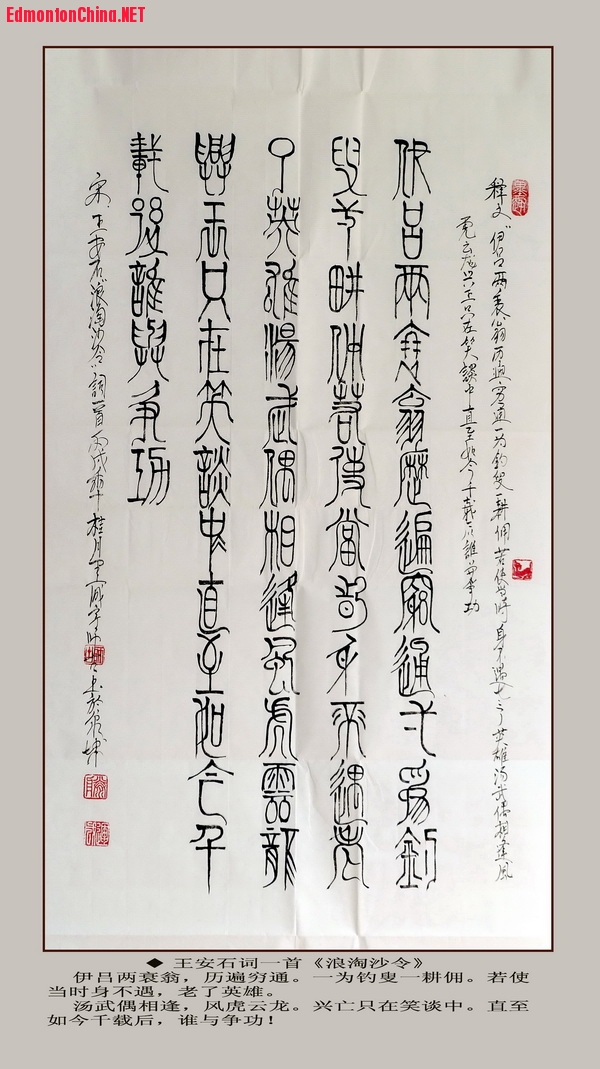 EdmontonChina.NET
释文"伊吕两衰翁历遍穷通一为钓叟一耕佣若使当时身不遇老了英雄汤武偶相逢风
虎云龙兴亡只在笑谈中直至如今千载后谁与争功
伊呂兩衰翁歷遍窮通弌爲釣
叟弌耕佣若使當時身不遇老
了英雄湯武偶相逢風虎雲龍
興亡只在笑談中直至如今千
載後誰與爭功
宋 王安石"浪淘沙令"词一首 丙戌年 桂月
◆ 王安石词一首《浪淘沙令》
伊吕两衰翁，历遍穷通。一为钓叟一耕佣。若使
当时身不遇，老了英雄。
汤武偶相逢，风虎云龙。兴亡只在笑谈中。直至
如今千载后，谁与争功！